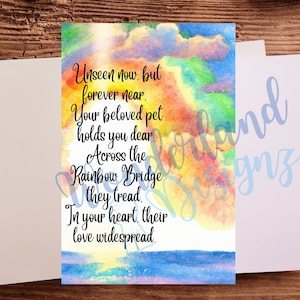 Unseen now, but
forever near,
Your beloved pet
holds you dear.
Across the
Rainbow Bridge
they tread,
In your heart, their
love widespread.
Wonderland
Designz